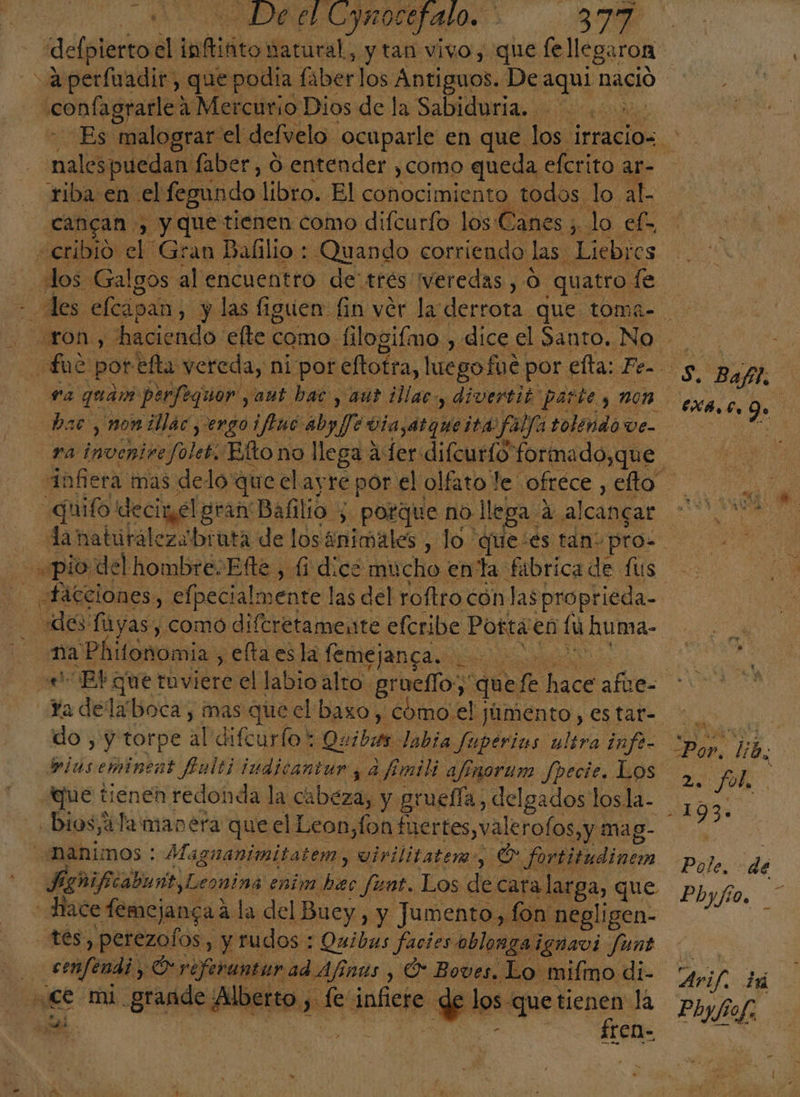 De el Cynocefalo. 377
deſpierto el inſtinto natural, y tan vivo, que ſe llegaron
à perſuadir, que podia ſaber los Antiguos. De aqui nació
conſagrarle à Mercurio Dios de la Sabiduria.
Es malograr el deſvelo ocuparle en que los irracio-
nales puedan ſaber, ò entender, como queda eſcrito ar-
riba en el ſegundo libro. El conocimiento todos lo al-
cançan, y que tienen como diſcurſo los Canes; lo eſ-
cribiò el Gran Baſilio: Quando corriendo las Liebres
los Galgos al encuentro de trés veredas, ò quatro ſe
les eſcapan, y las ſiguen ſin vèr la derrota que toma-
ron, haciendo eſte como ſilogiſmo, dice el Santo. No
fuè por eſta vereda, ni por eſtotra, luego fuè por eſta: Fe-
ra quàm perſequor, aut hac, aut illac, divertit parte, non
hac, non illàc, ergo iſtuc abyſſe via, atque ita falſa tolendo ve-
ra invenire ſolet. Eſto no llega à ſer diſcurſo formado, que
infiera mas de lo que el ayre por el olfato le ofrece, eſto
quiſo decir el gran Baſilio; porque no llega à alcançar
la naturaleza bruta de los ánimales, lo que es tan pro-
pio del hombre. Eſte, ſi dice mucho en la fabrica de ſus
facciones, eſpecialmente las del roſtro con las proprieda-
des ſuyas, como diſcretamente eſcribe Porta en ſu huma-
na Phiſonomia, eſta es la ſemejança.
El que tuviere el labio alto grueſſo, que ſe hace afue-
ra de la boca, mas que el baxo, como el jumento, es tar-
do, y torpe al diſcurſo: Quibus labia ſuperius ultra infe-
rius eminent ſtulti iudicantur, à ſimili aſinorum ſpecie. Los
que tienen redonda la cabeza, y grueſſa, delgados los la-
bios, à la manera que el Leon, ſon fuertes, valeroſos, y mag-
nanimos: Magnanimitatem, virilitatem, & fortitudinem
ſignificabunt, Leonina enim hæc ſunt. Los de cara larga, que
hace ſemejança à la del Buey, y Jumento, ſon negligen-
tes, perezoſos, y rudos: Quibus facies oblonga ignavi ſunt
cenſendi, & referuntur ad Aſinus, & Boves. Lo miſmo di-
ce mi grande Alberto, ſe infiere de los que tienen la
fren-
S. Baſil.
exa. c. 9.
Por. lib.
2. fol.
193.
Pole. de
Phyſio.
Ariſ. in
Phyſioſ.